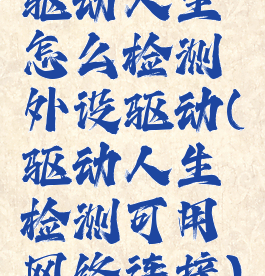 驱动人生
怎么检测
外设驱动(
驱动人生
检测可用
网络连接)